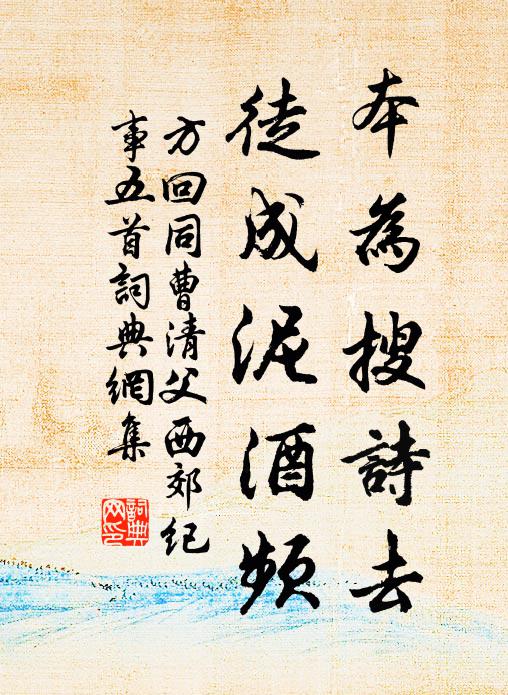 本為搜詩去
徒成泥酒頻
方回同曹清父西郊紀
事五首詞典網集
詞典
网印